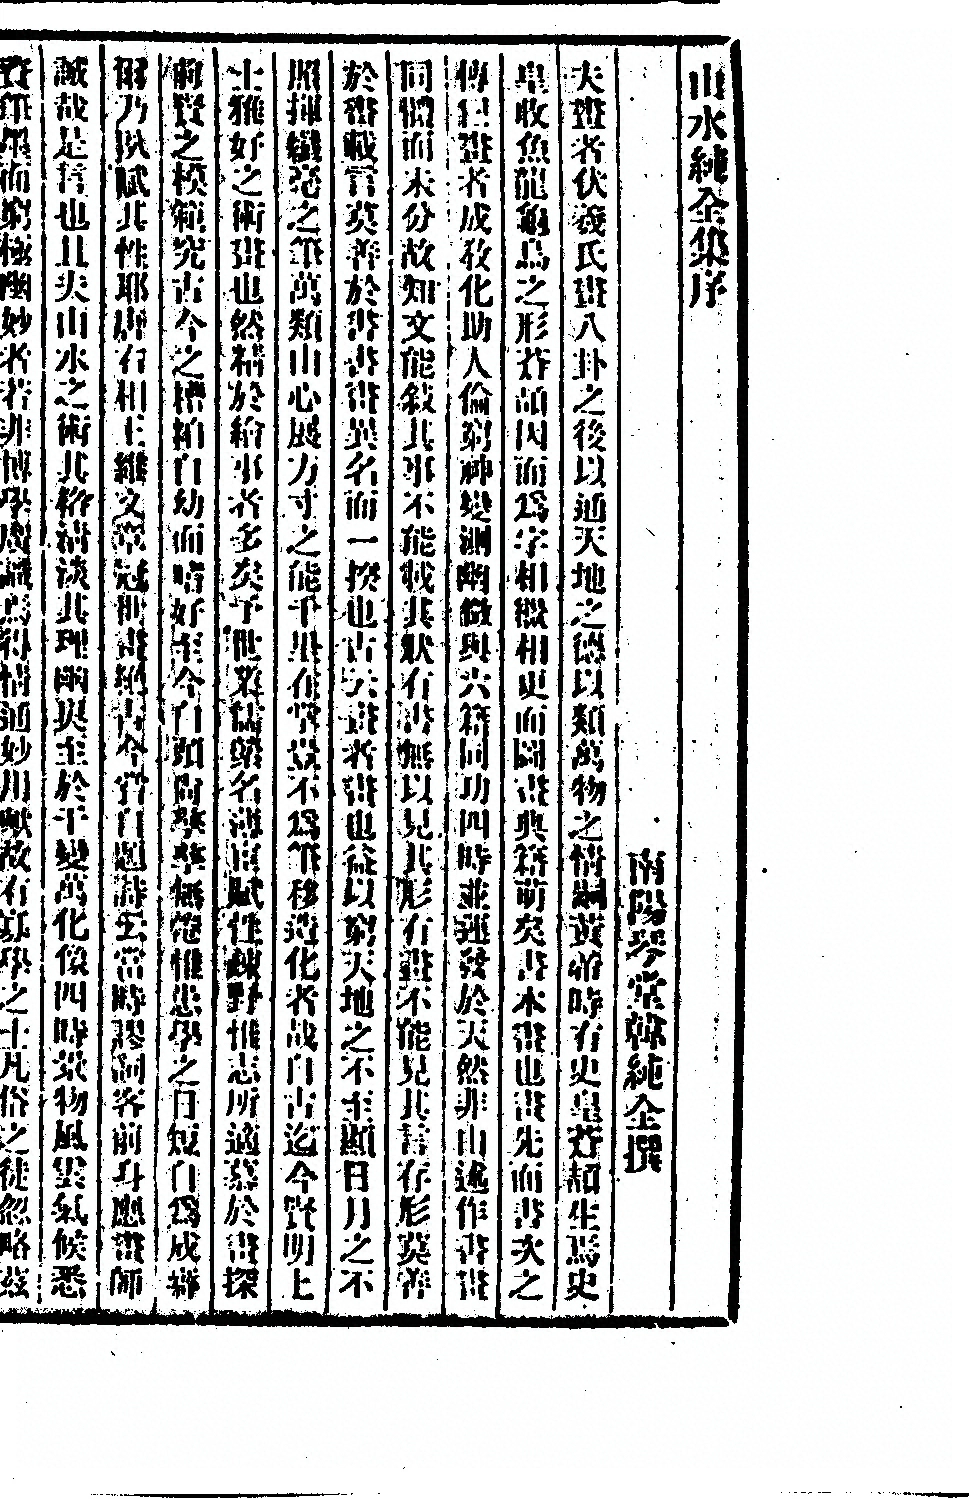 山水純全集序
南陽琴堂韓純全撰
夫畫者伏羲氏畫八卦之後以通天地之德以類萬物之情嗣黃帝時有史皇蒼頡生焉史
皇收魚龍龜鳥之形蒼頡因而爲字相繼相更而圖畫典籍萌矣書本畫也畫先而書次之
傳曰畫者成敎化助人倫窮神變測幽微與六籍同功四時並運發於天然非由述作書畫
同體而未分故知文能敍其事不能載其狀有書無以見其形有畫不能見其言存形莫善
於畫載言莫善於書書畫異名而一揆也古云畫者畫也益以窮天地之不至顯日月之不
照揮纖毫之筆萬類由心展方寸之能千里在掌豈不爲筆移造化者哉自古迄今賢明上
士雅好之術畫也然精於繪事者多矣予世業儒榮名薄宦賦性疎野惟志所適慕於畫探
前賢之模範究古今之糟粕自幼而嗜好至今白頭尙孳孳無倦惟患學之日短自爲成癖
爾乃夙賦其性耶唐右相王維文章冠世畫絕古今嘗自題詩云當時謬詞客前身應畫師
誠哉是言也且夫山水之術其格淸淡其理幽奧至於千變萬化像四時景物風雲氣候悉
資筆墨而窮極幽妙者若非博學廣識焉得情通妙用歟故有寡學之士凡俗之徒忽略茲